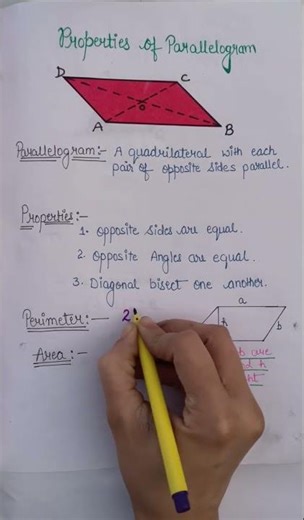 Properties of Parallelogram
D
C
O
A
B
Parallelogram:- A quadrilateral with each
pair of opposite sides parallel.
Properties:-
1. Opposite sides are equal.
2. Opposite Angles are equal.
3. Diagonal bisect one another.
a
Perimeter:- 2
h
b
Area:-
b are
h